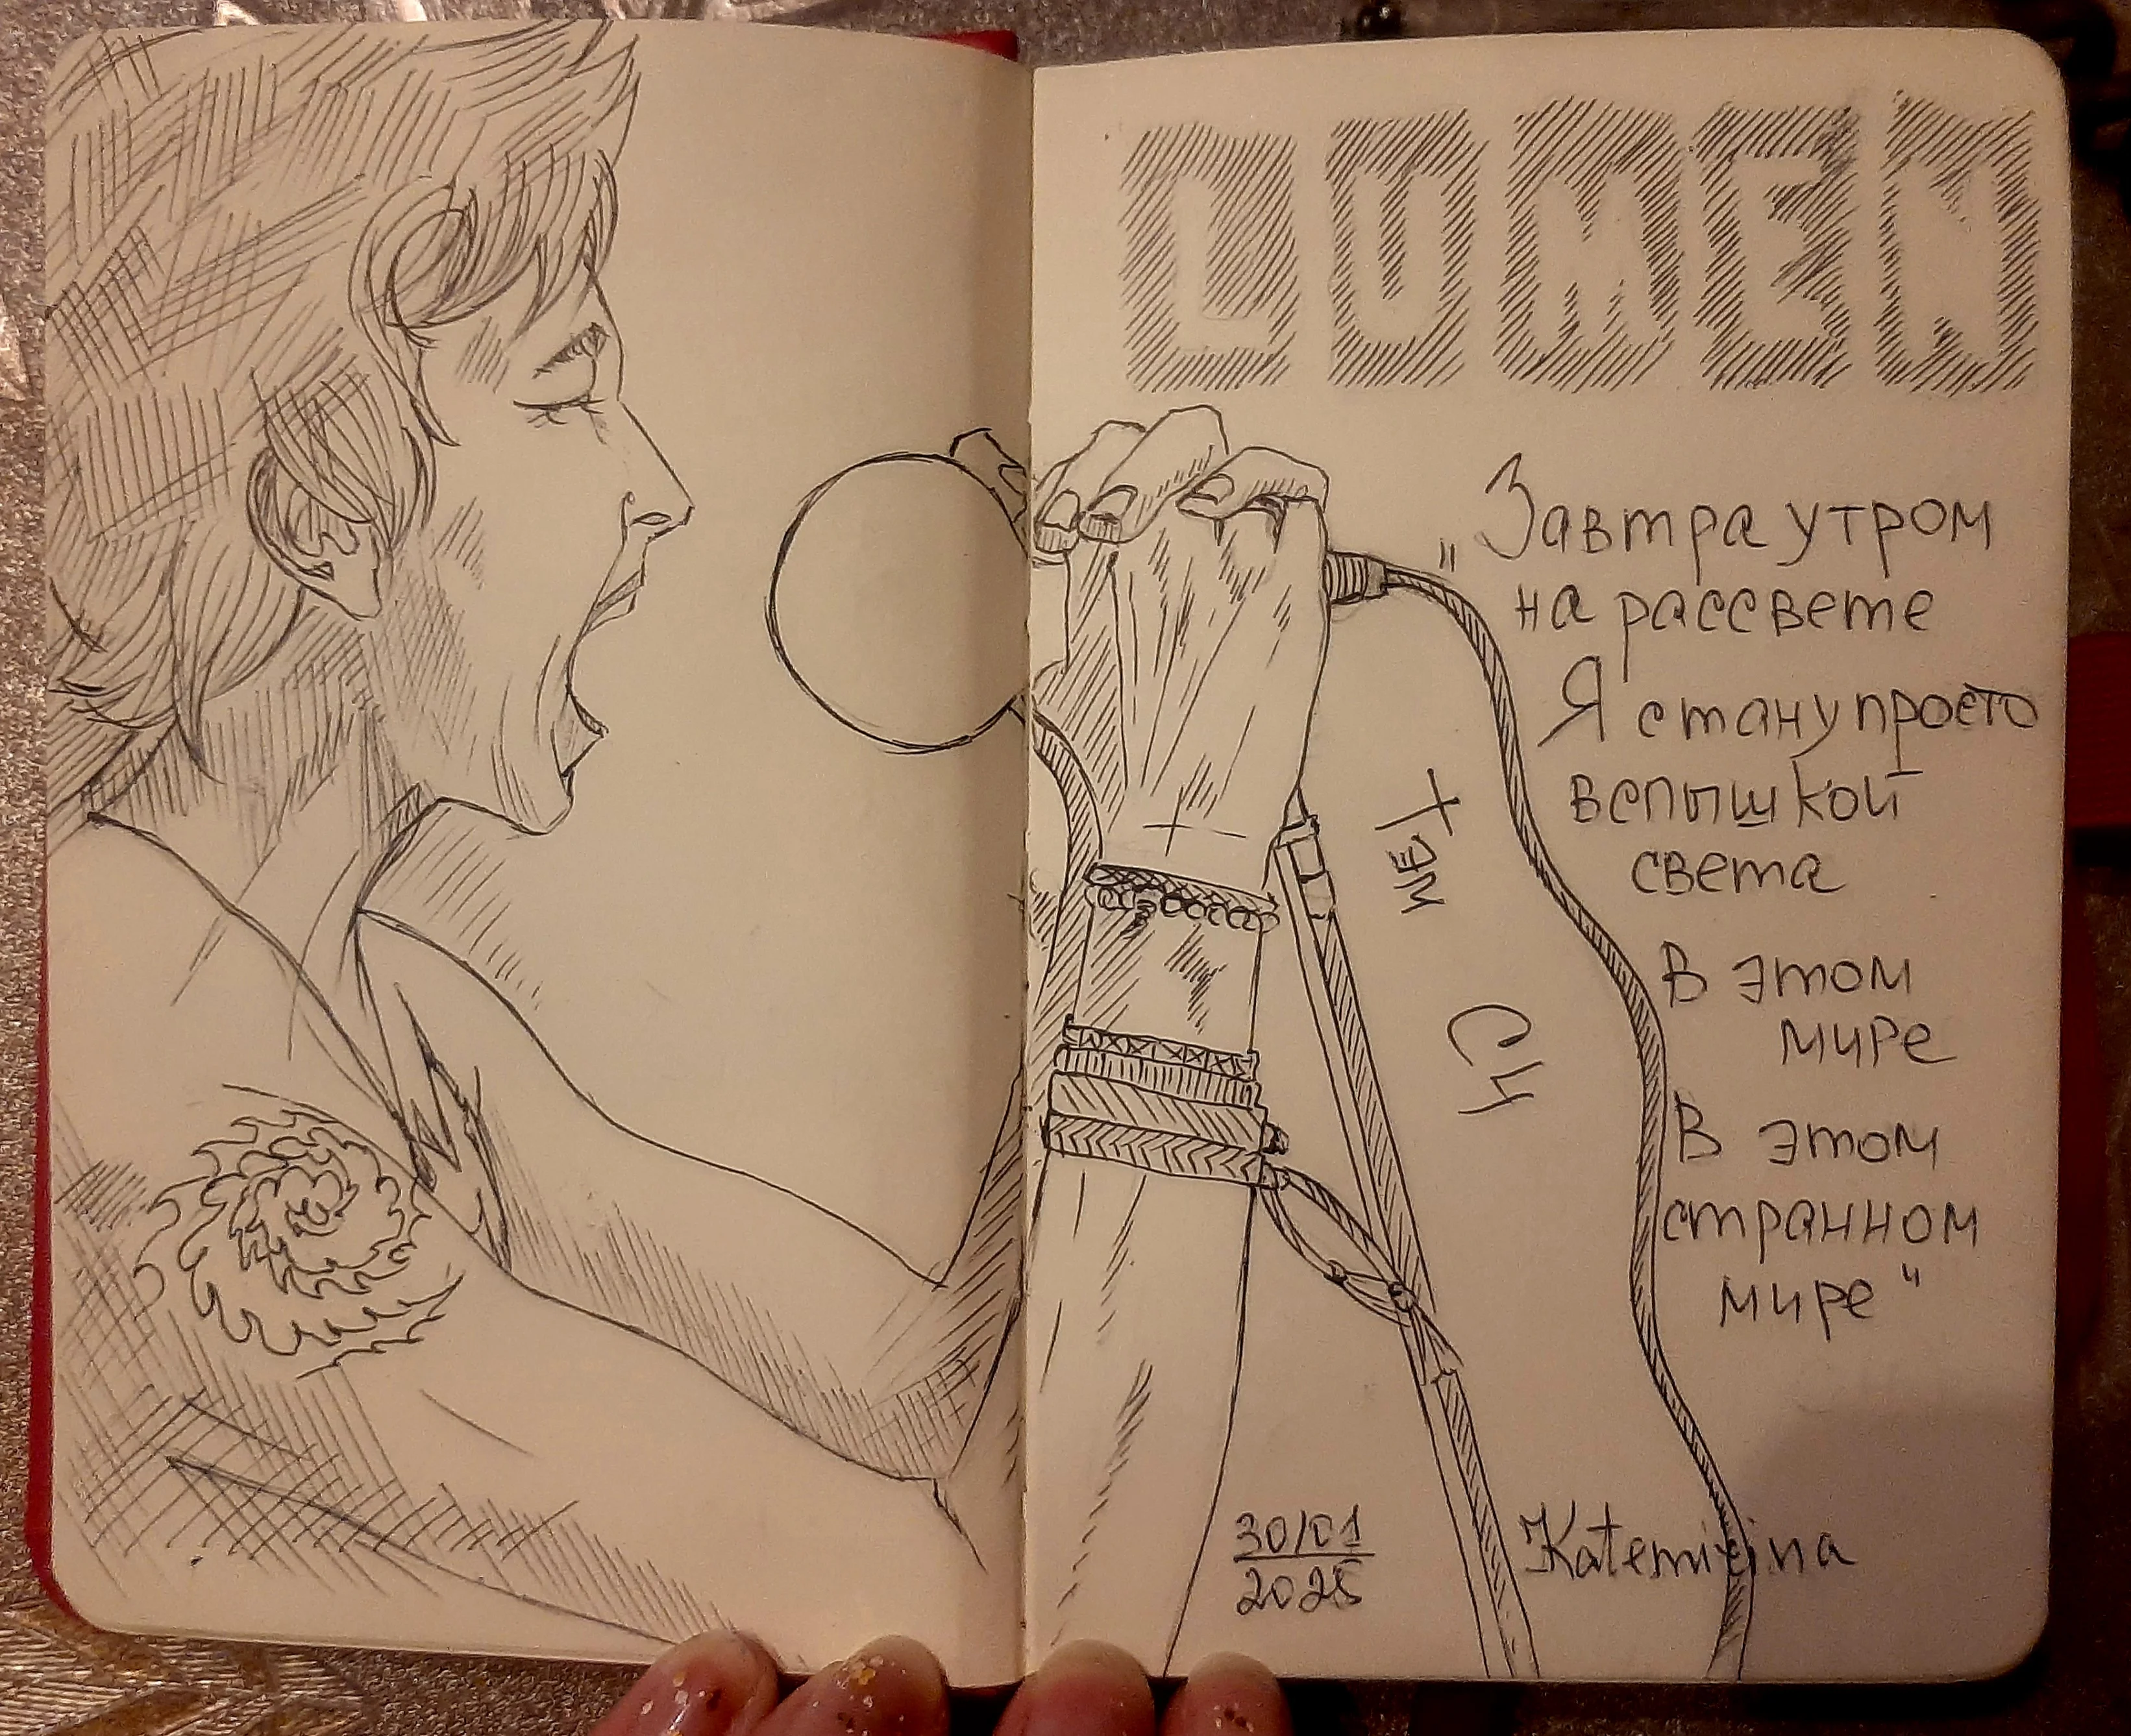 LUMEN
„Завтра утром
на рассвете
Я стану просто
вспышкой
света
В этом
мире
В этом
странном
мире"
30/01
2025